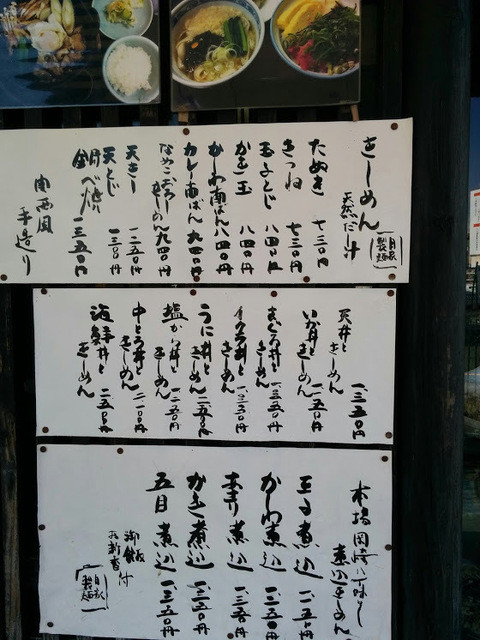 きしめん
天然だし汁
自家製麺
たぬき 七三〇円
きつね 七三〇円
玉子とじ 八四〇円
かき玉 八四〇円
かしわ南ばん 八四〇円
カレー南ばん 九四〇円
なめこおろしきしめん 九四〇円
天ざる
天とじ
鍋べ焼 一三五〇円
関西風
手造り
天丼ときしめん 一、三五〇円
いか丼ときしめん
まぐろ丼ときしめん 一、三五〇円
イクラ丼ときしめん 一、三五〇円
うに丼ときしめん 二、五〇円
塩から丼ときしめん 一、二五〇円
中とろ丼ときしめん
海鮮丼ときしめん
本場岡崎八丁味の
煮込きしめん
玉子煮込
かしわ煮込 一、二五〇円
あさり煮込
かき煮込 一、三五〇円
五目煮込 一、三五〇円
御飯
汁
お新香
自家製麺